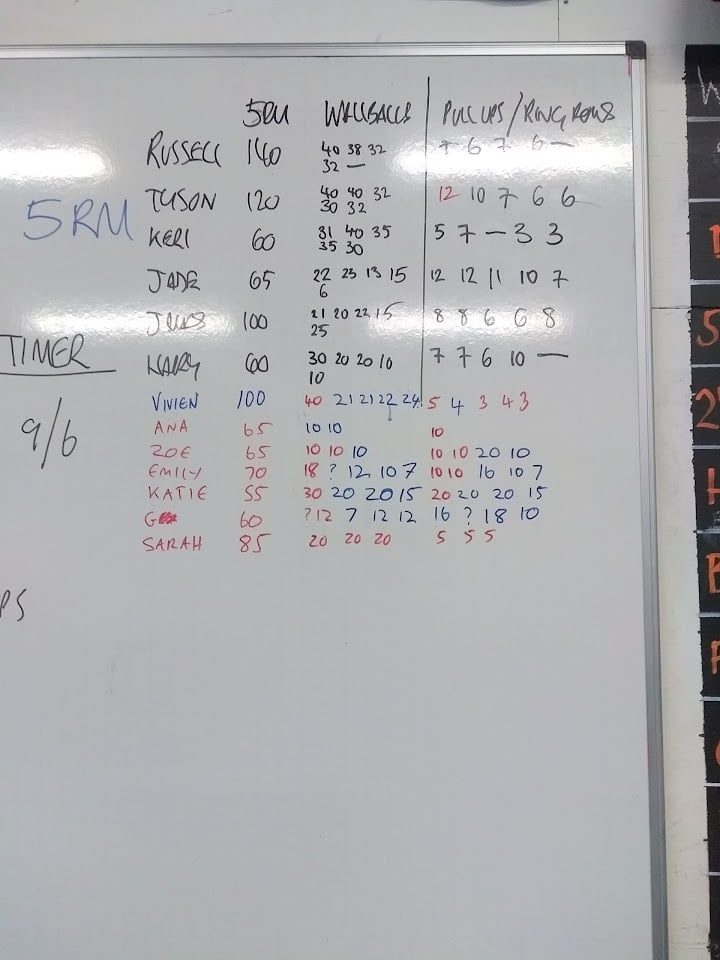 5RM WALLBALLS PULL UPS / RING ROWS
RUSSELL 140 40 38 32 7 6 7 6 —
32 —
TYSON 120 40 40 32 12 10 7 6 6
30 32
5RM
KERI 60 31 40 35 5 7 — 3 3
35 30
JADE 65 22 23 13 15 12 12 11 10 7
6
100 21 20 22 15 8 8 6 6 8
25
TIMER
60 30 20 20 10 7 7 6 10 —
10
VIVIEN 100 40 21 21 22 24 5 4 3 4 3
9/6
ANA 65 10 10 10
ZOE 65 10 10 10 10 10 20 10
EMILY 70 18 ? 12 10 7 10 10 16 10 7
KATIE 55 30 20 20 15 20 20 20 15
G 60 ? 12 7 12 12 16 ? 18 10
SARAH 85 20 20 20 5 5 5
PS